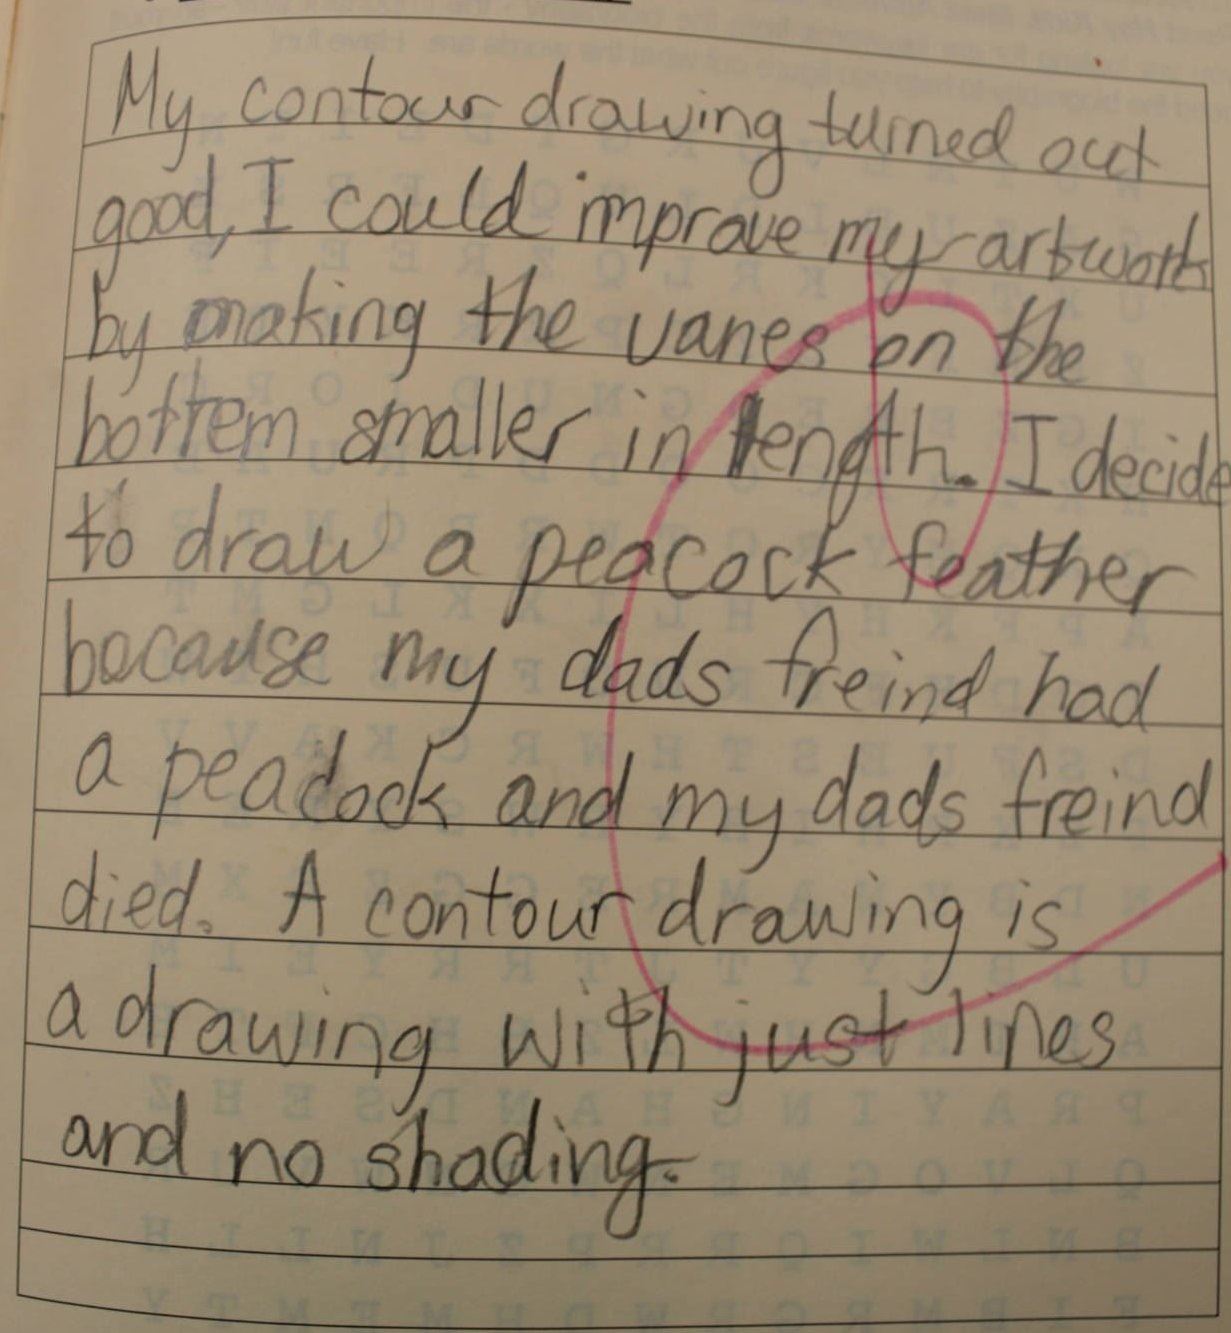 My contour drawing turned out
good, I could improve my artwork
by making the vanes on the
bottem smaller in length. I decide
to draw a peacock feather
because my dads freind had
a peacock and my dads freind
died. A contour drawing is
a drawing with just lines
and no shading.